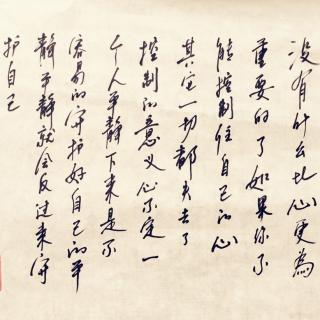 没有什么比心更為
重要的了如果你不
能控制住自己的心
其它一切都失去了
控制的意义心不定一
个人平静下来是不
容易的守护好自己的平
静平静就会反过来守
护自己